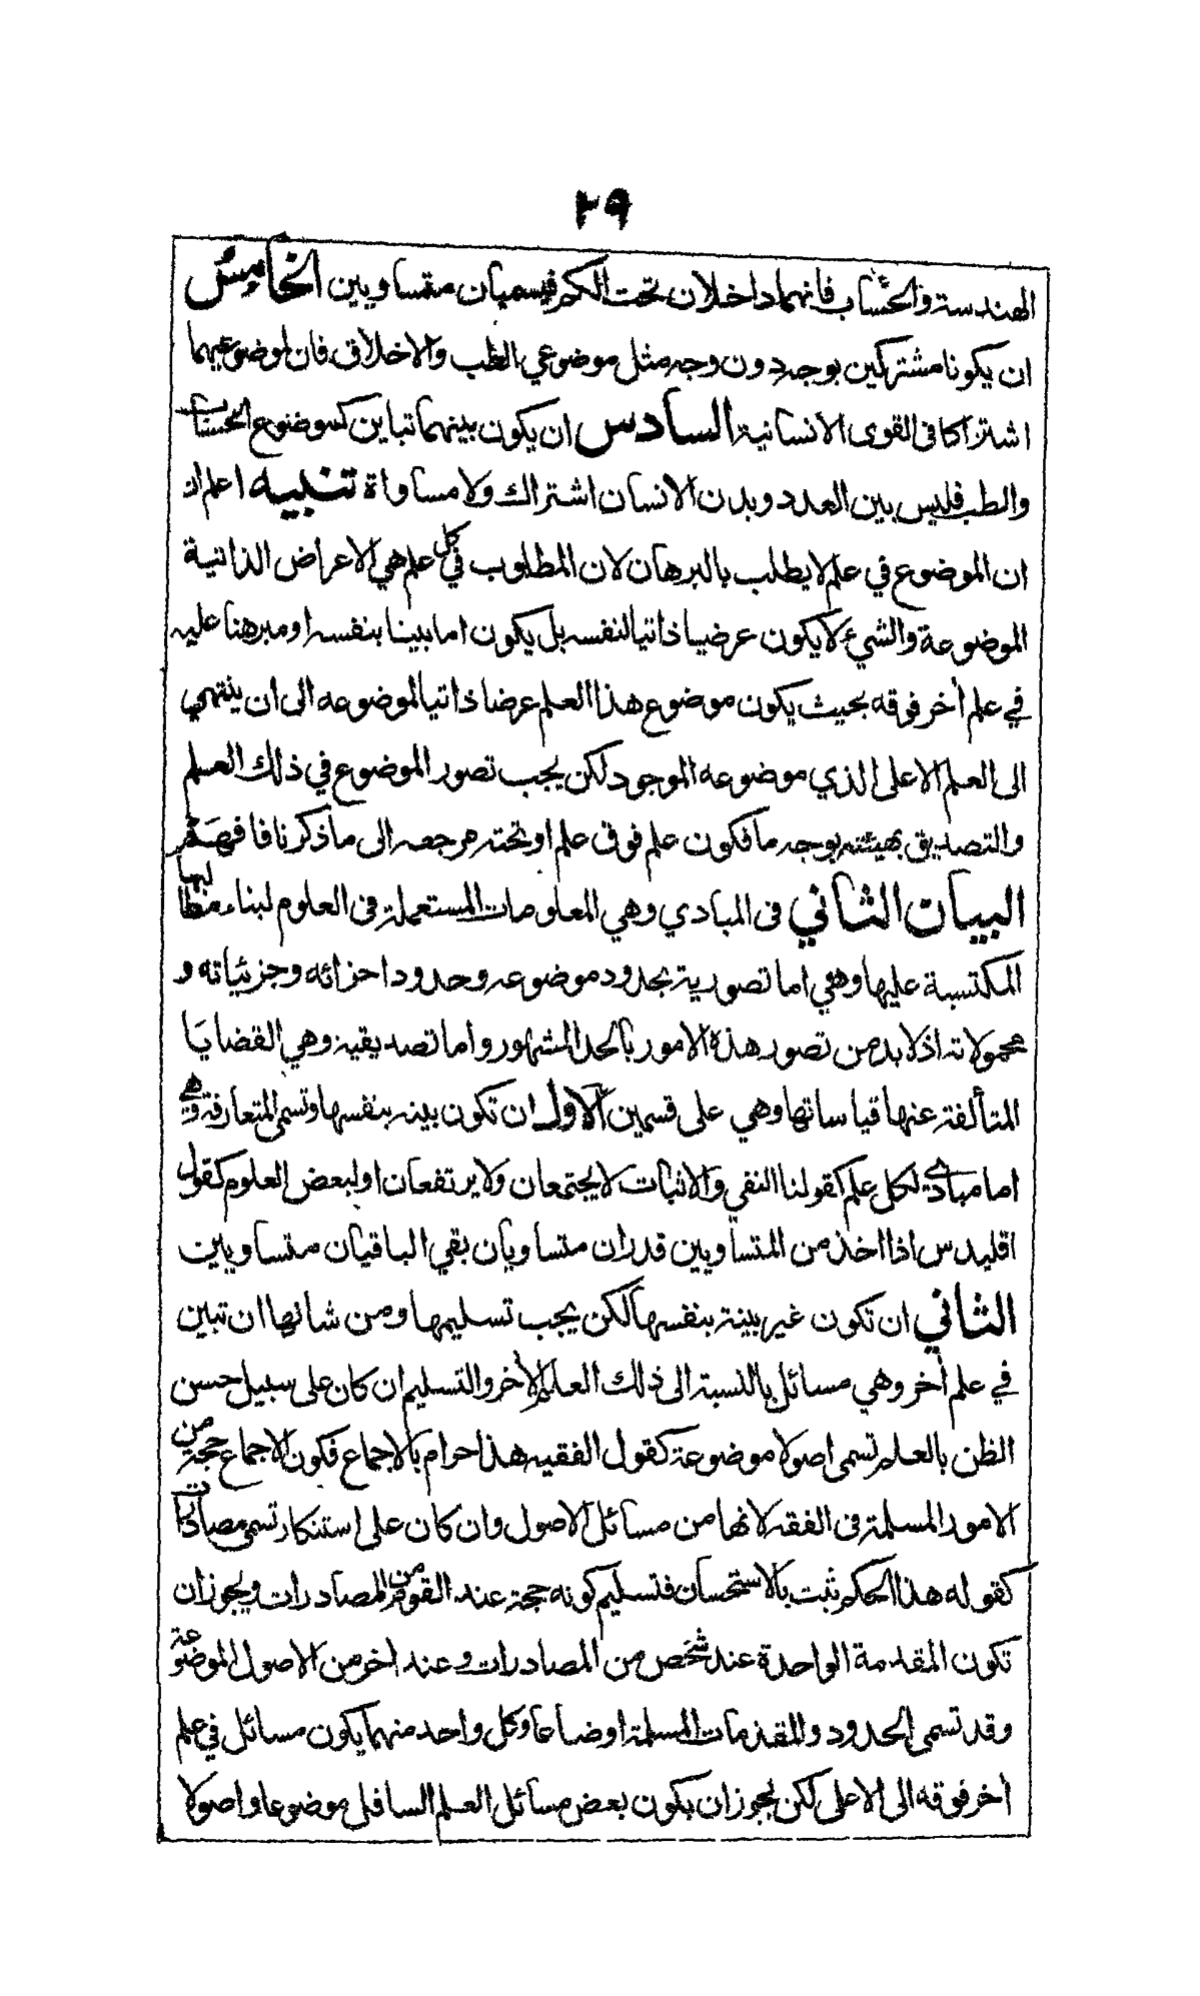 ٢٩
الهندسة والحساب فانهما داخلان تحت الكم قسميان متساويين الخامس
ان يكونا مشتركين بوجه دون وجه مثل موضوعي الطب والاخلاق فان لموضوعيهما
اشتراكا فى القوى الانسانية السادس ان يكون بينهما تباين كموضوع الحساب
والطب فليس بين العدد وبدن الانسان اشتراك ولا مساواة تنبيه اعلم ان
ان الموضوع في علم لا يطلب بالبرهان لان المطلوب في كل علم هي الاعراض الذاتية
الموضوعة والشيء لا يكون عرضيا ذاتيا لنفسه بل يكون اما بينا بنفسه او مبرهنا عليه
في علم أخر فوقه بحيث يكون موضوع هذا العلم عرضا ذاتيا لموضوعه الى ان ينتهي
الى العلم الاعلى الذي موضوعه الموجود لكن يجب تصور الموضوع في ذلك العلم
والتصديق بهيئته بوجه ما فكون علم فوق علم او تحته مرجعه الى ما ذكرنا فافهم
البيان الثاني فى المبادي وهي المعلومات المستعملة فى العلوم لبناء مطالبها
المكتسبة عليها وهي اما تصورية بحدود موضوعه وحدود اجزائه وجزئياته و
محمولاته اذ لا بد من تصور هذه الامور بالحد المشهور واما تصديقية وهي القضايا
المتألفة عنها قياساتها وهي على قسمين الاول ان تكون بينه بنفسها وتسمى المتعارفة وهي
اما مبادي لكل علم كقولنا النفي والاثبات لا يجتمعان ولا يرتفعان او لبعض العلوم كقول
اقليدس اذا اخذ من المتساويين قدران متساويان بقي الباقيان متساويين
الثاني ان تكون غير بينة بنفسها لكن يجب تسليمها ومن شانها ان تبين
في علم أخر وهي مسائل بالنسبة الى ذلك العلم الأخر والتسليم ان كان على سبيل حسن
الظن بالعلم تسمى اصولا موضوعة كقول الفقيه هذا حرام بالاجماع فكون الاجماع حجة من
الامور المسلمة فى الفقه لانها من مسائل الاصول وان كان على استنكار تسمى مصادرات
كقوله هذا الحكم ثبت بالاستحسان فتسليم كونه حجة عند القوم من المصادرات ويجوز ان
تكون المقدمة الواحدة عند شخص من المصادرات وعند اخر من الاصول الموضوعة
وقد تسمى الحدود والمقدمات المسلمة اوضاعا وكل واحد منهما يكون مسائل في علم
أخر فوقه الى الاعلى لكن يجوز ان يكون بعض مسائل العلم السافل موضوعا واصولا